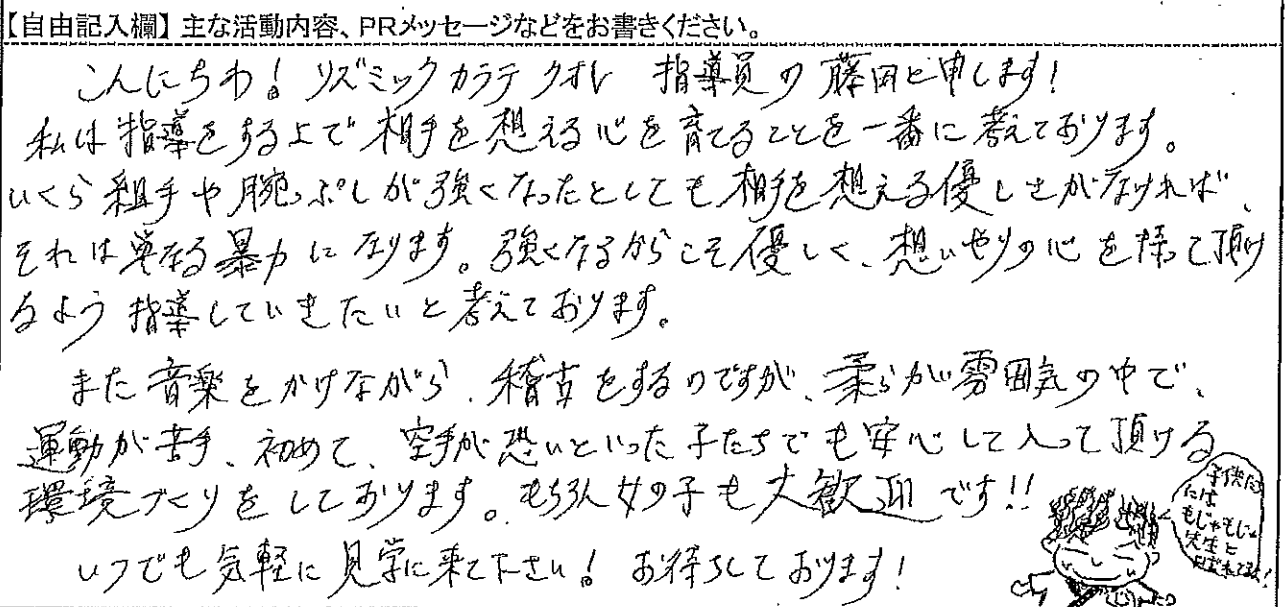 【自由記入欄】 主な活動内容、PRメッセージなどをお書きください。
こんにちわ! リズミックカラテ クオレ 指導員の 藤田と申します!
私は指導をする上で相手を想える心を育てることを一番に考えております。
いくら組手や腕っぷしが強くなったとしても相手を想える優しさがなければ、
それは単なる暴力になります。強くなるからこそ優しく、想いやりの心を持って頂け
るよう指導していきたいと考えております。
また音楽をかけながら、稽古をするのですが、柔らかい雰囲気の中で、
運動が苦手、初めて、空手が恐いといった子たちでも安心して入って頂ける
環境づくりをしております。もちろん女の子も大歓迎です!!
いつでも気軽に見学に来て下さい! お待ちしております!
子供た
には
もじゃもじゃ
先生と
呼ばれてます!